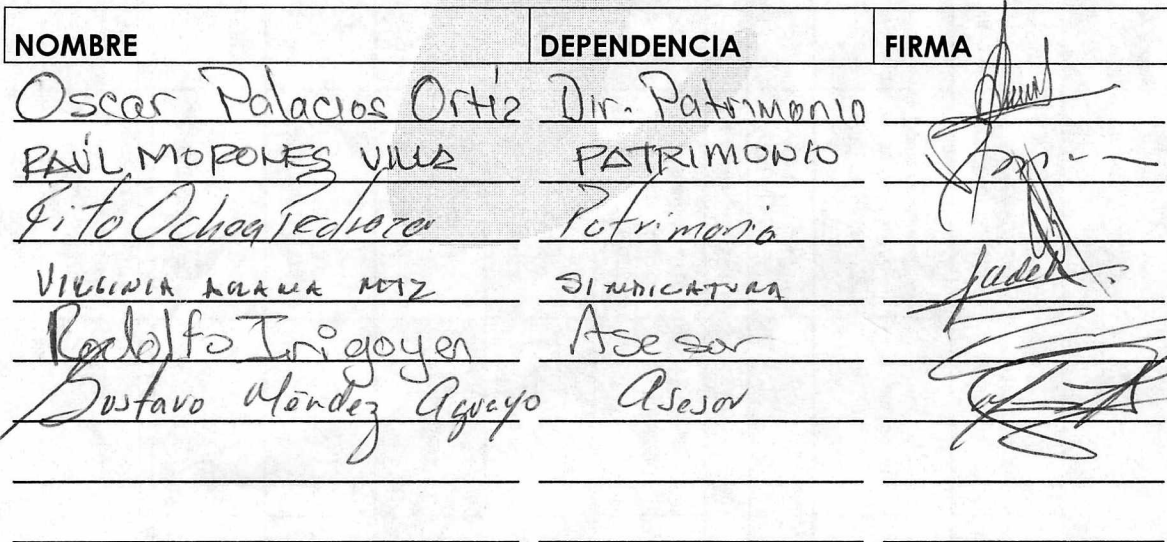 NOMBRE DEPENDENCIA FIRMA
Oscar Palacios Ortiz Dir. Patrimonio
RAÚL MORONES VILLA PATRIMONIO
Tito Ochoa Pedroza Patrimonio
VIRGINIA MTZ SINDICATURA
Rodolfo Irigoyen Asesor
Gustavo Méndez Aguayo Asesor